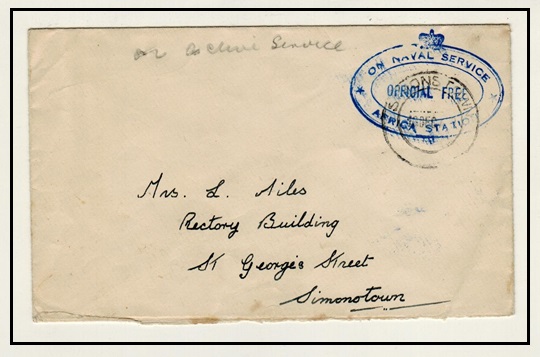 on active Service
ON NAVAL SERVICE
OFFICIAL FREE
AFRICA STATION
Mrs. L. Niles
Rectory Building
St George's Street
Simonstown